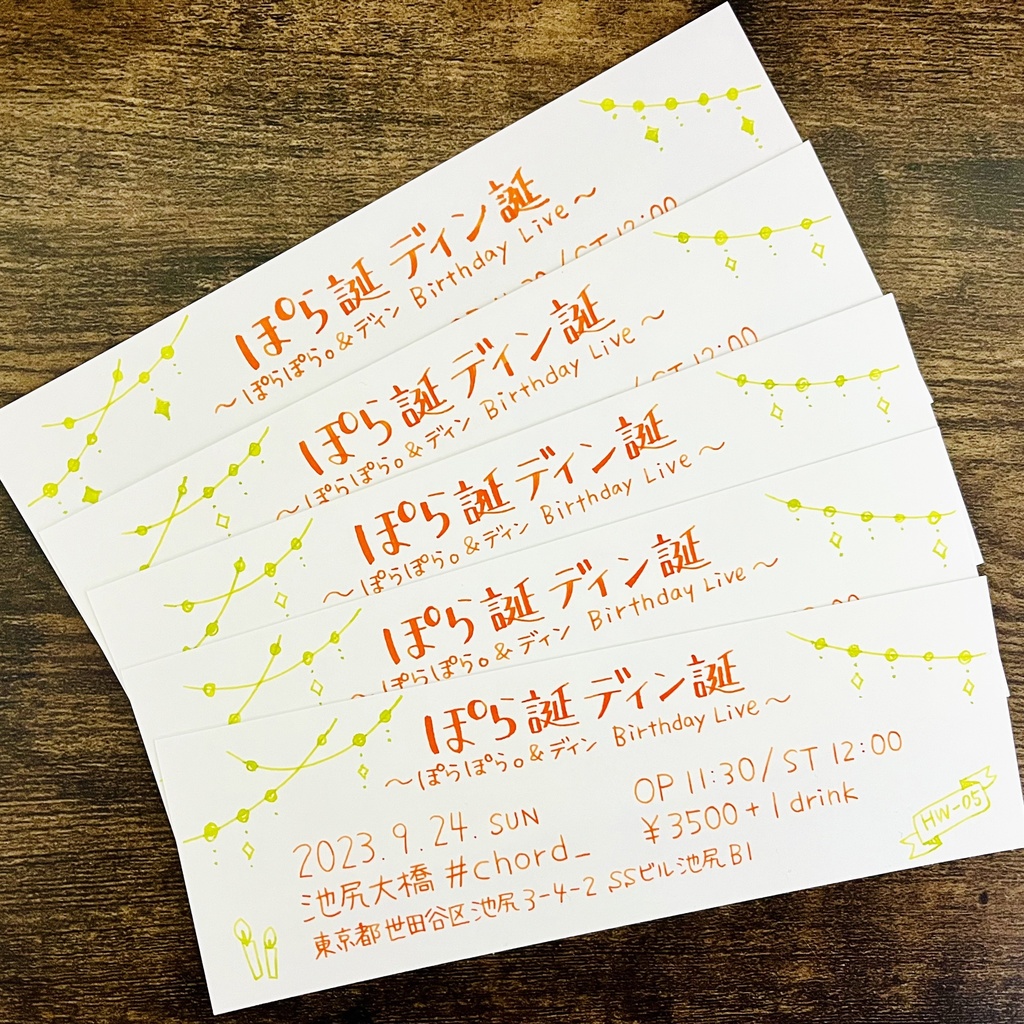 ぽら誕 ディン誕
～ぽらぽら。&ディン Birthday Live～
ST 12:00
ぽら誕 ディン誕
～ぽらぽら。&ディン Birthday Live～
ST 12:00
ぽら誕 ディン誕
～ぽらぽら。&ディン Birthday Live～
ぽら誕 ディン誕
～ぽらぽら。&ディン Birthday Live～
ぽら誕 ディン誕
～ぽらぽら。&ディン Birthday Live～
2023.9.24.SUN
OP 11:30/ST 12:00
池尻大橋 #chord_
¥3500+1drink
東京都世田谷区池尻3-4-2 SSビル池尻B1
HW-05